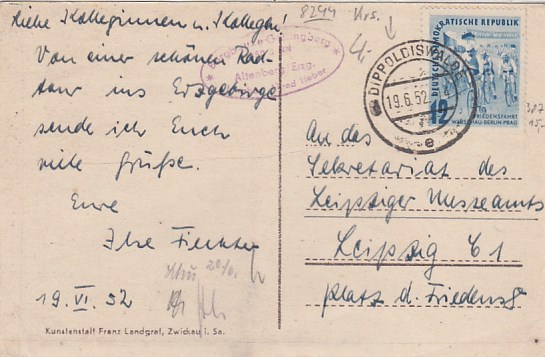 Liebe Kolleginnen u. Kollegen!
Von einer schönen Rad-
tour ins Erzgebirge
sende ich Euch
viele Grüße.
Eure
Ilse
19. VI. 52
Kunstanstalt Franz Landgraf, Zwickau i. Sa.
8244
Altenberg Erzg.
DIPPOLDISWALDE
19.6.52
e
DEUTSCHE DEMOKRATISCHE REPUBLIK
12
FRIEDENSFAHRT
WARSCHAU-BERLIN-PRAG
An das
Sekretariat des
Leipziger Messeamts
Leipzig C1
Platz d. Friedens